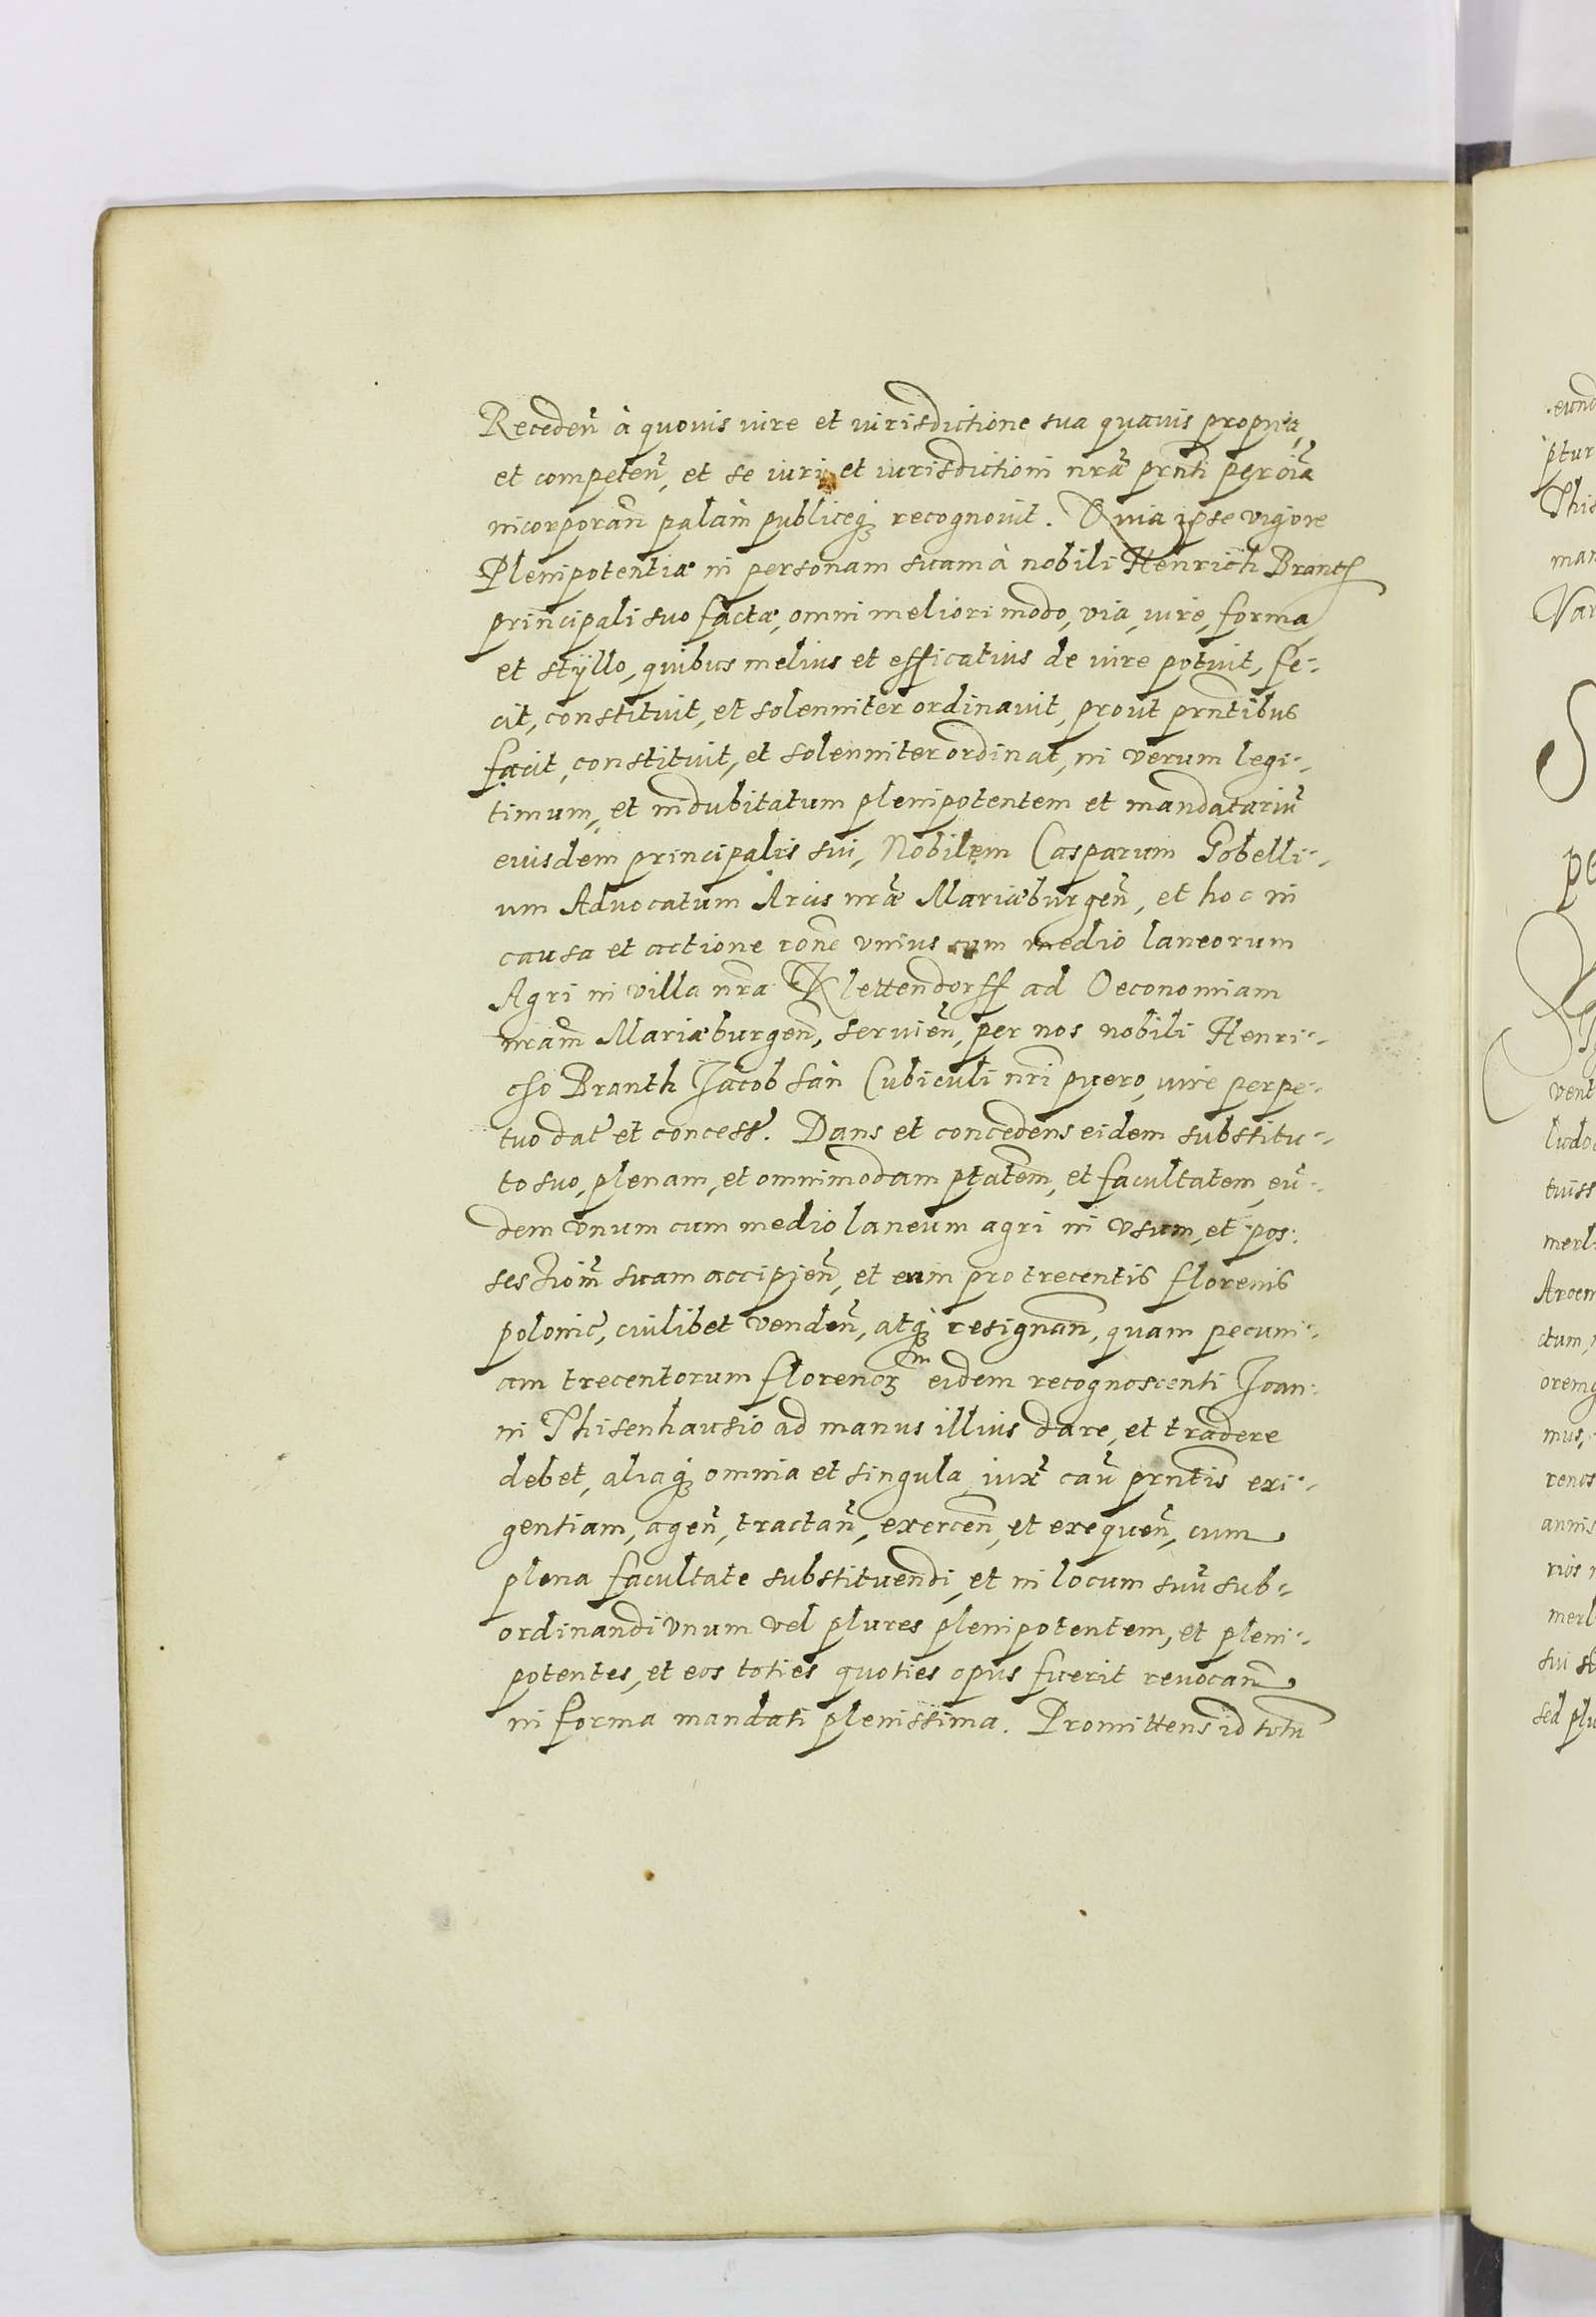 Receden̄ à quovis iure et iurisdictione sua quavis propria,
et competen̄, et se iuri et iurisdictioni nrã prnti per oĩa
incorporan̄ palam publiceq; recognovit. Quia ipse vigore
Plenipotentiæ in personam suam à nobili Henrich Branth
principali suo factæ, omni meliori modo, via, iure, forma,
et styllo, quibus melius et efficatius de iure potuit, fe-
cit, constituit, et solenniter ordinavit, prout prntibus
facit, constituit, et solenniter ordinat, in verum legi-
timum, et indubitatum plenipotentem et mandatariũ
eiusdem principalis sui, Nobilem Casparum Gobelli-
um Advocatum Arcis nræ Mariæburgen̄, et hoc in
causa et actione rone vnius cum medio laneorum
Agri in villa nra Klettendorff ad Oeconomiam
nram Mariæburgen̄, servien̄, per nos nobili Henri-
cho Branth Jacobsan Cubiculi nri puero, iure perpe-
tuo dat̃ et concess̃. Dans et concedens eidem substitu-
to suo, plenam, et omnimodam ptatem, et facultatem, eũ-
dem vnum cum medio laneum agri in vsum, et pos-
sessionm̃ suam accipien̄, et eum pro trecentis florenis
polonic̃, cuilibet venden̄, atq; resignan̄, quam pecuni-
am trecentorum florenor̃ m eidem recognoscenti Joan-
ni Thisenhausio ad manus illius dare, et tradere
debet, aliaq; omnia et singula, iuxt̃ caũ prntis exi-
gentiam, agen̄, tractan̄, exercen̄, et exequen̄, cum
plena facultate substituendi, et in locum suũ sub-
ordinandi vnum vel plures plenipotentem, et pleni-
potentes, et eos toties quoties opus fuerit revocan̄
in forma mandati plenissima. Promittens id totũ